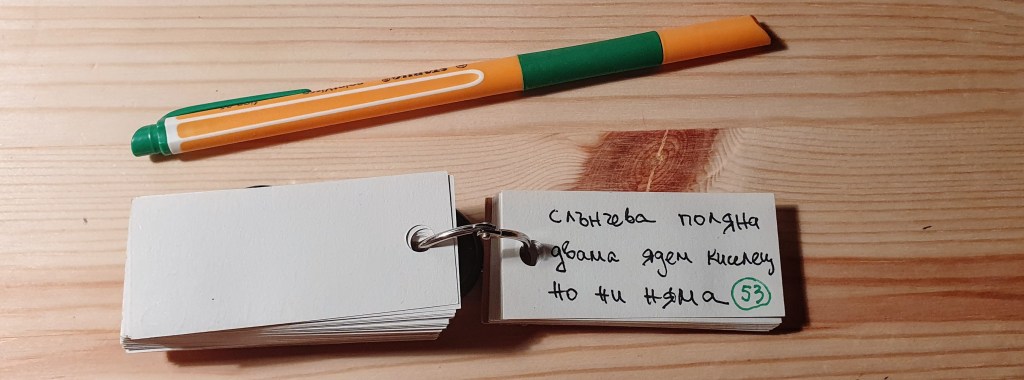 STABILO
слънчева поляна
двама ядем киселец
но ни няма 53